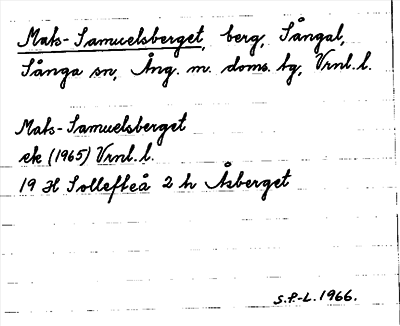 Mats-Samuelsberget, berg, Sångal,
Sånga sn, Ång. m. doms. tg, Vrnl. l.
Mats-Samuelsberget
ek (1965) Vrnl. l.
19 H Sollefteå 2 h Åsberget
S.F.-L. 1966.